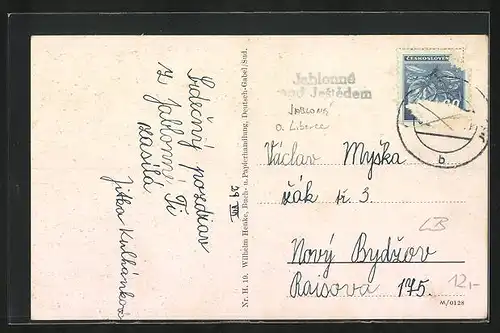 Srdečný pozdrav
z Jablonne Ti
zasílá
Jitka Kulhánková
Nr. H. 19. Wilhelm Henke, Buch- u. Papierhandlung, Deutsch-Gabel/Sud.
ČESKOSLOVEN
Jablonné
pod Ještědem
JABLONNÉ
o. Liberec
b
Václav Myška
žák tř. 3
Nový Bydžov
Raisova 175.
LB
12,-
M/0128